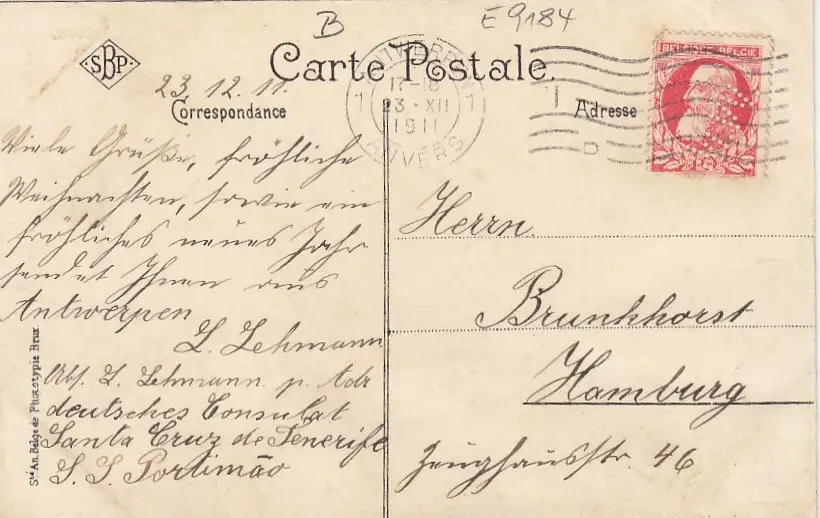 B
E 9184
SBP
Carte Postale.
23.12.11.
Correspondance
Adresse
ANTWERPEN
1 17-18 1
23·XII
1911
ANVERS
BELGIQUE-BELGIE
10
Viele Grüße, fröhliche
Weihnachten, sowie ein
fröhliches neues Jahr
sendet Ihnen aus
Antwerpen
L. Lehmann
Abs. L. Lehmann p. Adr
deutsches Consulat
Santa Cruz de Tenerife
S. S. Portimão
Herrn
Brunkhorst
Hamburg
Zeughausstr. 46
Sté An. Belge de Phototypie Brux